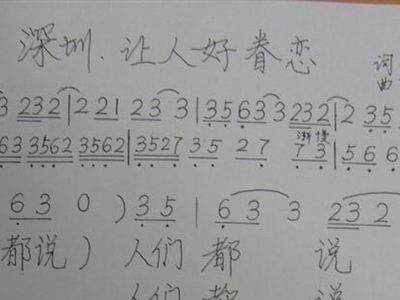 深圳.让人好眷恋
词
曲
3 232 | 2 221 23 3 | 35 63 3 232 | 2 35
63 3562 3562 | 3527 35 27 73 | 56 6
渐慢
6 3 0 ) 35 | 6 3 3 232
都说) 人们 都 说
人们 都 说